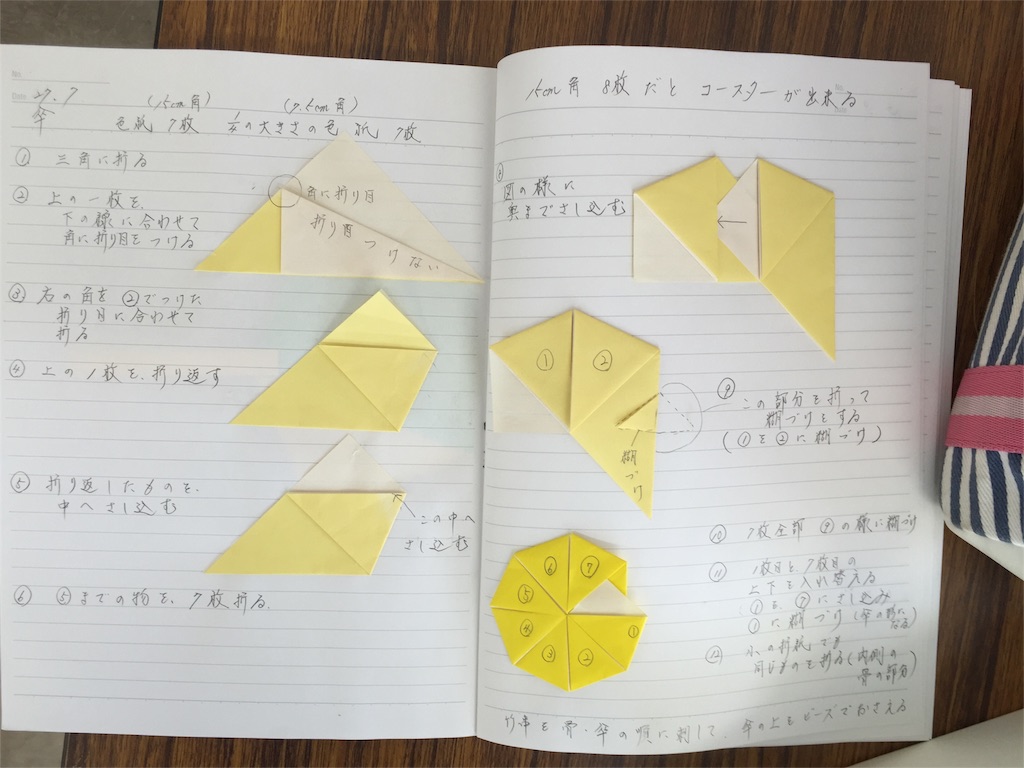 No.
Date 27.7
傘
(15cm角) (7.5cm角)
色紙 7枚 1/4の大きさの色紙 7枚
① 三角に折る
② 上の一枚を、
下の線に合わせて
角に折り目をつける
角に折り目
折り目つけない
③ 右の角を ②でつけた
折り目に合わせて
折る
④ 上の1枚を、折り返す
⑤ 折り返したものを、
中へさし込む
この中へ
さし込む
⑥ ⑤までの物を、7枚折る.
15cm角 8枚だとコースターが出来る
図の様に
奥までさし込む
① ②
⑨
この部分を折って
糊づけをする
(①を②に糊づけ)
糊づけ
⑩ 7枚全部 ⑨の様に糊づけ
⑪ 1枚目と7枚目の
上下を入れ替える
①を⑦にさし込み
①に糊づけ(傘の形に
なる)
⑥ ⑦
⑤
④ ①
③ ②
⑫ 小の折紙でも
同じものを折る(内側の
骨の部分)
竹串を骨・傘の順に刺して、傘の上をビーズでおさえる